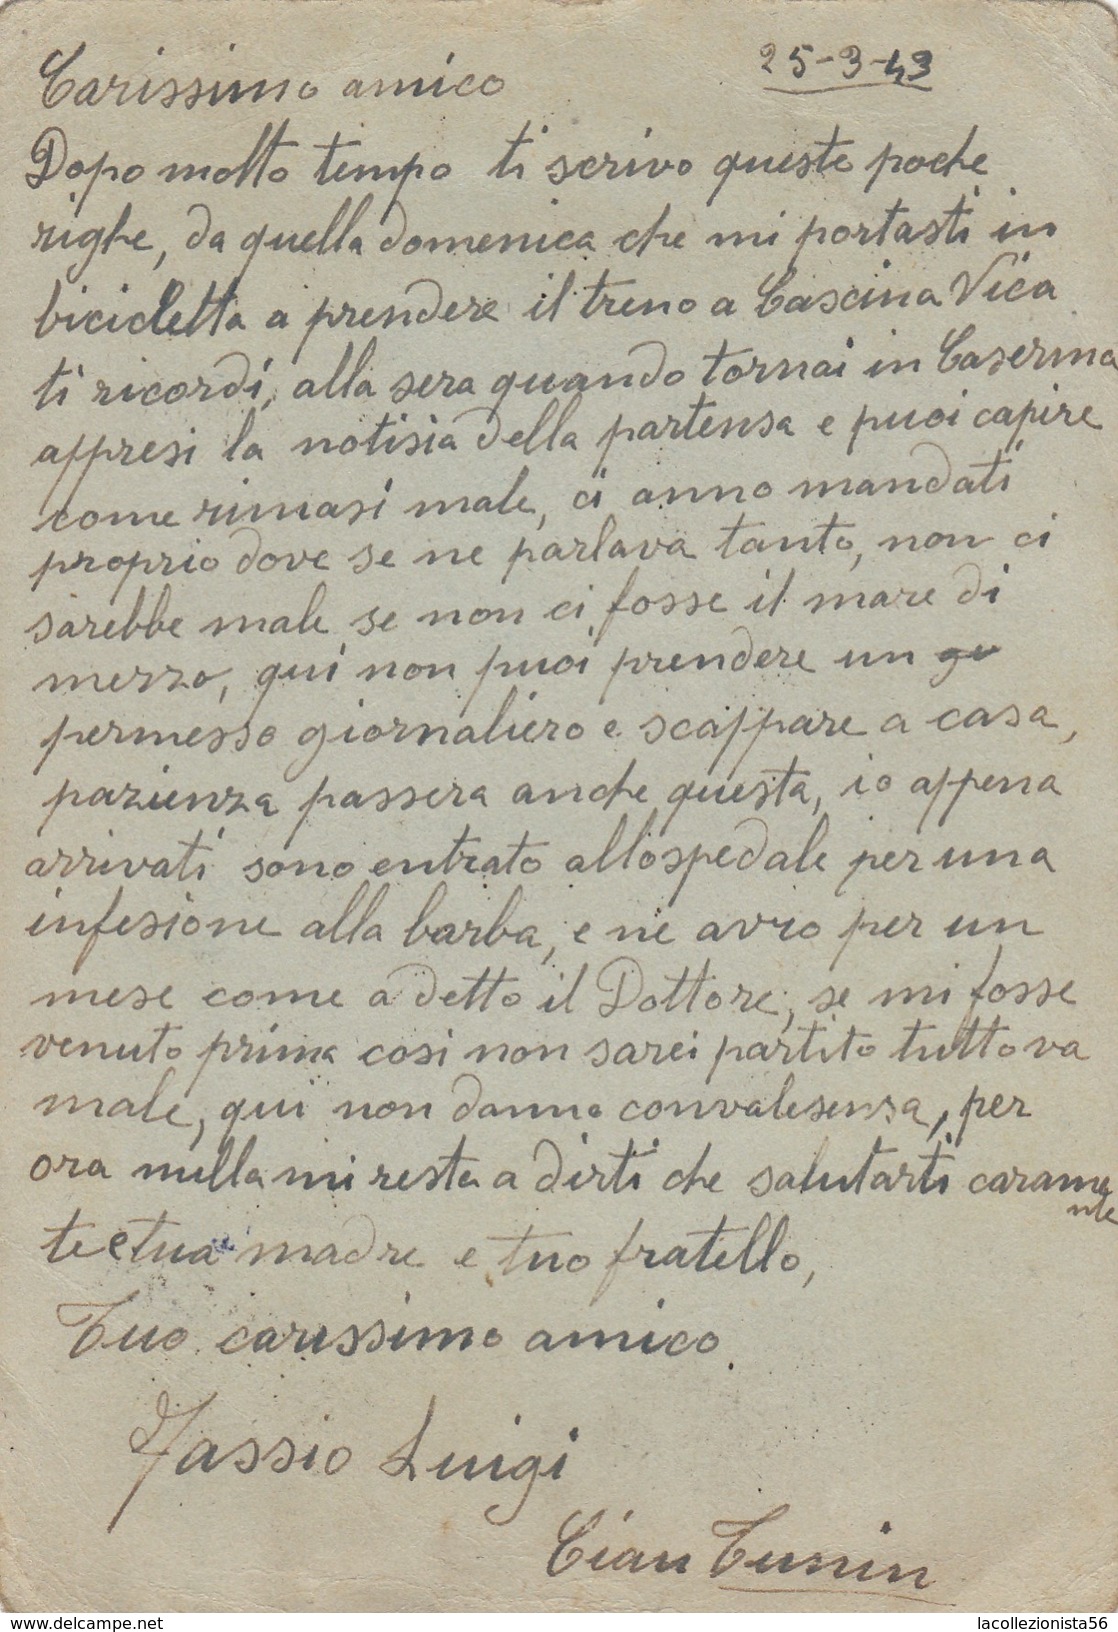 25-3-43
Carissimo amico
Dopo molto tempo ti scrivo queste poche
righe, da quella domenica che mi portasti in
bicicletta a prendere il treno a Cascina Vica
ti ricordi, alla sera quando tornai in Caserma
appresi la notisia della partensa e puoi capire
come rimasi male, ci anno mandati
proprio dove se ne parlava tanto, non ci
sarebbe male se non ci fosse il mare di
mezzo, qui non puoi prendere un
permesso giornaliero e scappare a casa,
pazienza passera anche questa, io appena
arrivati sono entrato allospedale per una
infesione alla barba, e ne avro per un
mese come a detto il Dottore, se mi fosse
venuto prima cosi non sarei partito tutto va
male, qui non danno convalesensa, per
ora nulla mi resta a dirti che salutarti carame
nte
te e tua madre e tuo fratello,
Tuo carissimo amico
Tassio Luigi
Ciau Tunin
delcampe.net
lacollezionista56